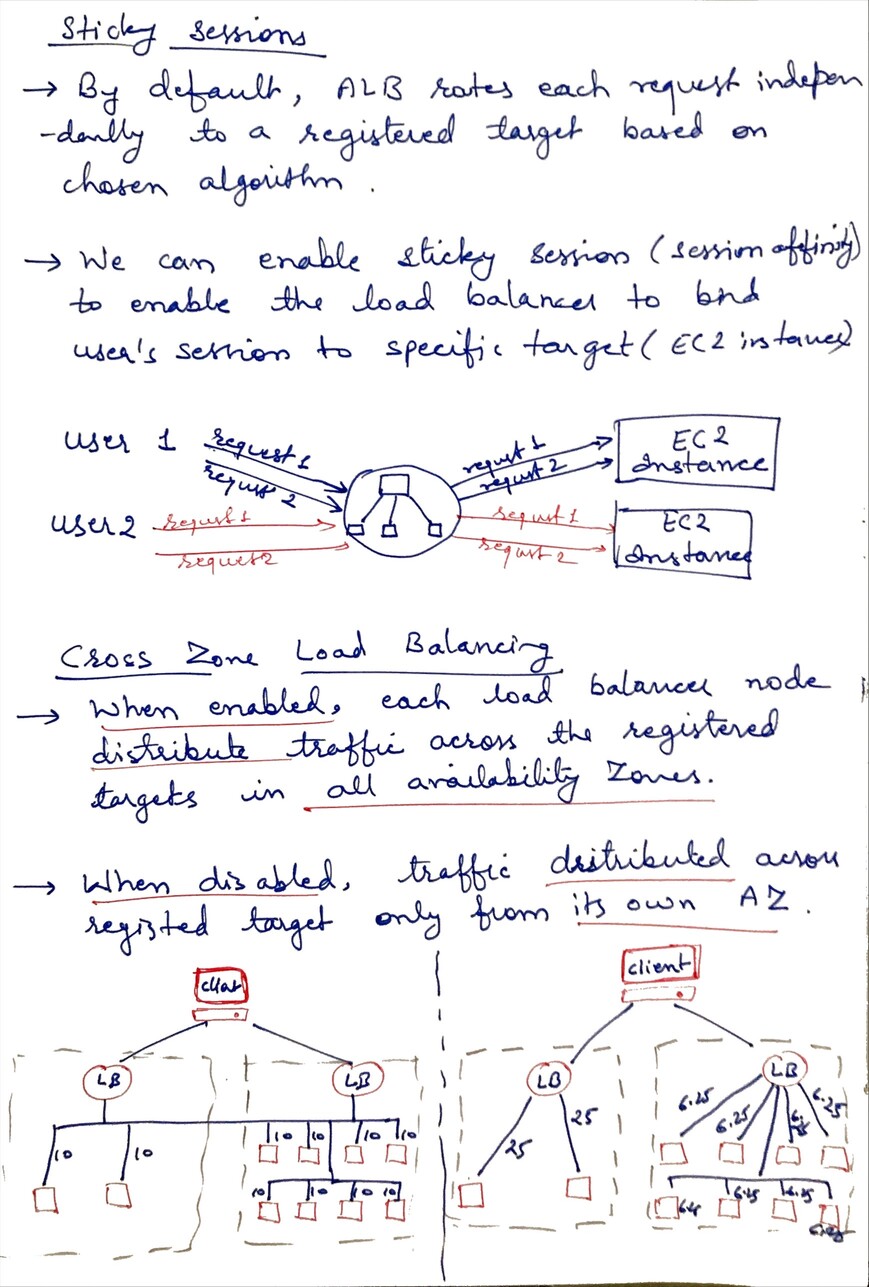 Sticky sessions
→ By default, ALB rotes each request indepen
-dently to a registered target based on
chosen algorithm.
→ We can enable sticky session (session affinity)
to enable the load balancer to bnd
user's session to specific target (EC2 instances)
user 1 request 1 request 1 EC2
request 2 request 2 Instance
user 2 request 1 request 1 EC2
request 2 request 2 Instance
Cross Zone Load Balancing
→ When enabled, each load balancer node
distribute traffic across the registered
targets in all availability Zones.
→ When disabled, traffic distributed across
registed target only from its own AZ.
client
LB LB
10 10 10 10 10 10
10 10 10 10
client
LB LB
25 25 6.25 6.25 6.25 6.25
6.25 6.25 6.25 6.25